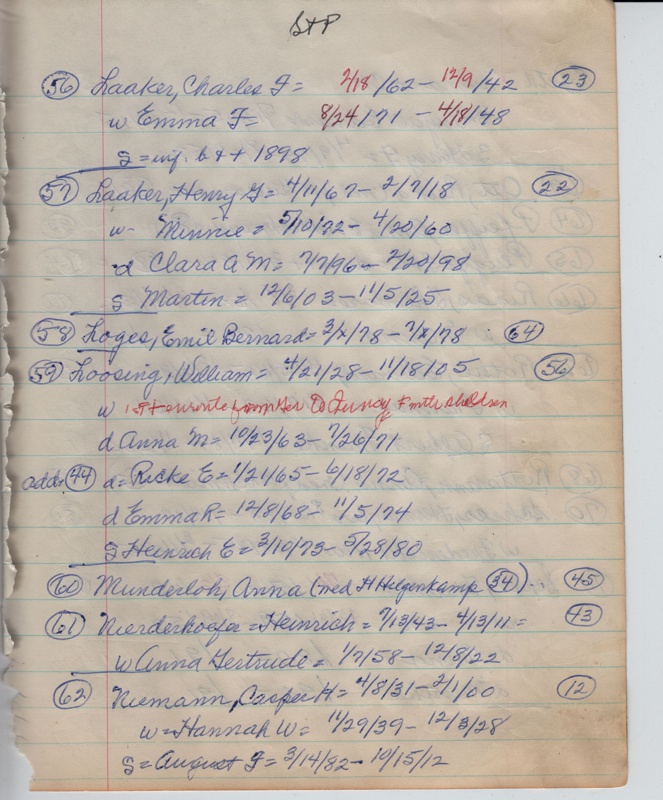 St P
56 Laaker, Charles F = 2/18/62 - 12/9/42 23
w Emma F = 8/24/71 - 4/18/48
S = inf. b + + 1898
57 Laaker, Henry G = 4/11/67 - 2/7/18 22
w - Minnie = 5/10/72 - 4/20/60
d Clara A M = 7/7/96 - 2/20/98
S Martin = 12/6/03 - 11/5/25
58 Loges, Emil Bernard = 3/x/78 - 7/x/78 64
59 Loosing, William = 4/21/28 - 11/18/05 56
w 1st
d Anna M = 10/23/63 - 7/26/71
add = 44 d = Ricke E = 1/21/65 - 6/18/72
d Emma R = 12/8/68 - 11/5/74
S Heinrich E = 3/10/73 - 5/28/80
60 Munderloh, Anna (med H Helgenkamp 34) .. 45
61 Nierderhoefer = Heinrich = 7/13/43 - 4/13/11 = 43
w Anna Gertrude = 1/7/58 - 12/8/22
62 Niemann, Casper H = 4/8/31 - 2/1/00 12
w = Hannah W = 11/29/39 - 12/3/28
S = August F = 3/14/82 - 10/15/12